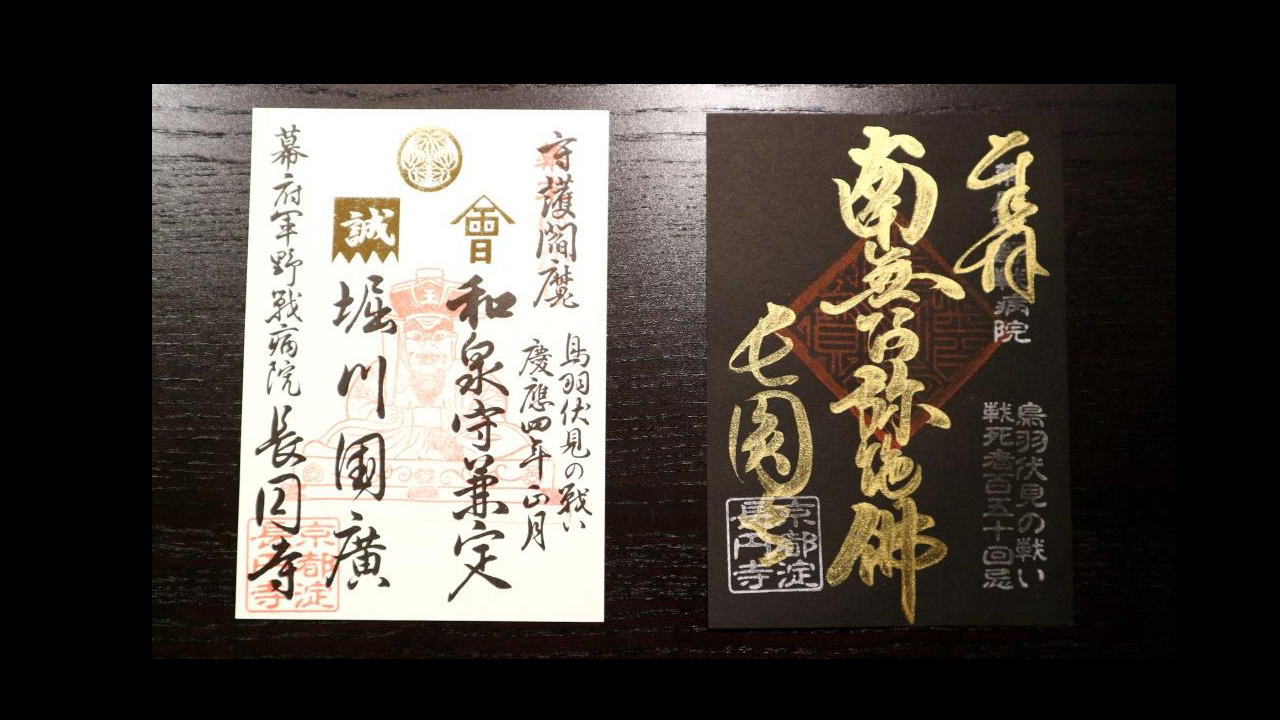 守護閻魔
鳥羽伏見の戦い
慶應四年正月
會
和泉守兼定
誠
堀川國廣
王
幕府軍野戦病院 長円寺
京都淀
長円寺
奉拝
病院
鳥羽伏見の戦い
戦死者百五十回忌
南無阿弥陀佛
長圓寺
京都淀
長円寺